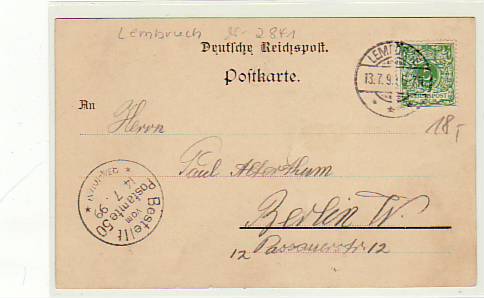 Lembruch Nr. 2841
Deutsche Reichspost.
Postkarte.
LEMFÖRDE
13.7.9
REICHSPOST
An
Herrn
18,-
Paul Alterthum
Bestellt
vom
Postamte 50
14 7 99
Berlin W.
12 Passauerstr 12